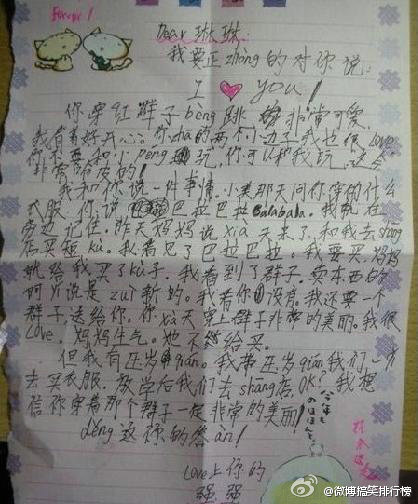 Forever!
Dear 琳琳
我要正zhòng的对你说
I ❤ you!
你穿红群子bèng跳 非常可爱,
我看着好开心。你zha的两个小边子我也很Love。
你不要和小peng玩,你可以和我玩,这会
非常调皮的!
我和你说一件事情。小美那天问你穿的什么
衣服,你说 巴拉巴拉balabala。我就在
旁边记住。昨天妈妈说xià天来了,和我去shang
店买短kù。我看见了巴拉巴拉,我要买,妈妈
就给我买了kù子。我看到了群子。卖东西的
阿yí说是zuì新的。我看你没有。我还要一个
群子送给你,你xià天穿上群子非常的美丽。我很
Love。妈妈生气。她不给买。
但我有压岁qián。我带压岁qián,我们一齐
去买衣服,放学后我们去shang店,OK!我想
信你穿着那个群子一定非常的美丽!
děng这你的答àn!
Love上你的
强强
@微博搞笑排行榜